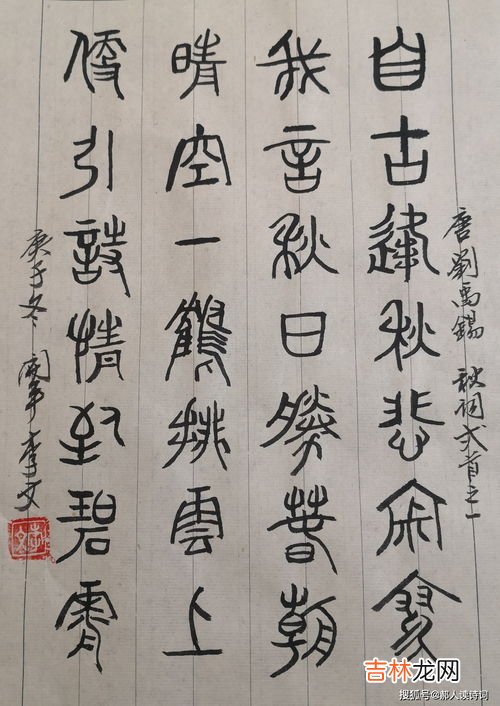 唐劉禹錫 秋詞弍首之一
自古逢秋悲寂寥
我言秋日勝春朝
晴空一鶴排雲上
便引詩情到碧霄
庚子冬 李文
吉林龙网
搜狐号@郝人读诗词